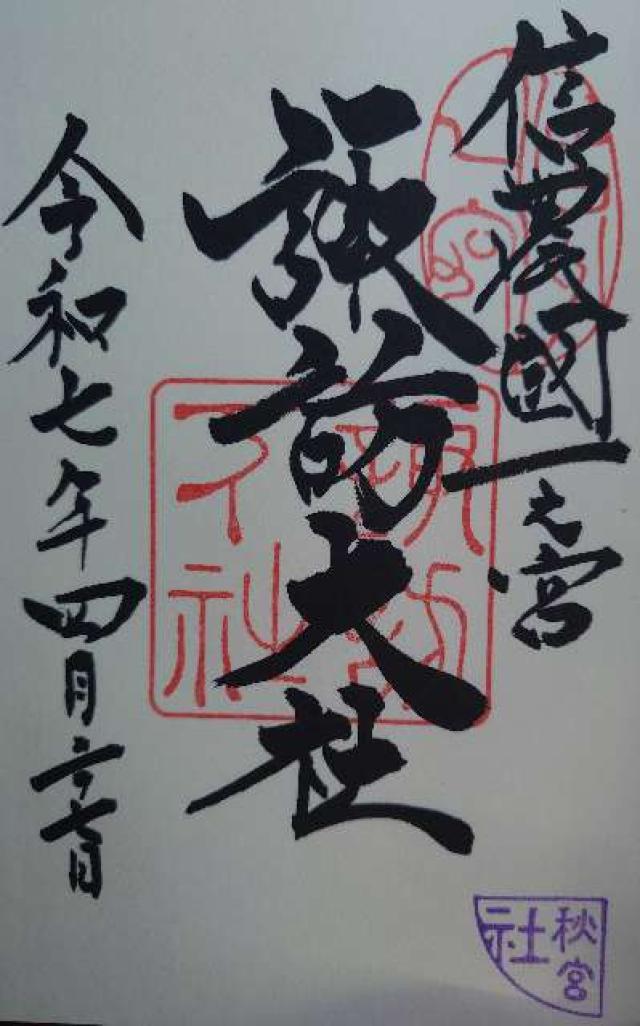 信濃國一之宮
諏訪大社
令和七年四月二十七日
諏訪
下社
秋宮
社